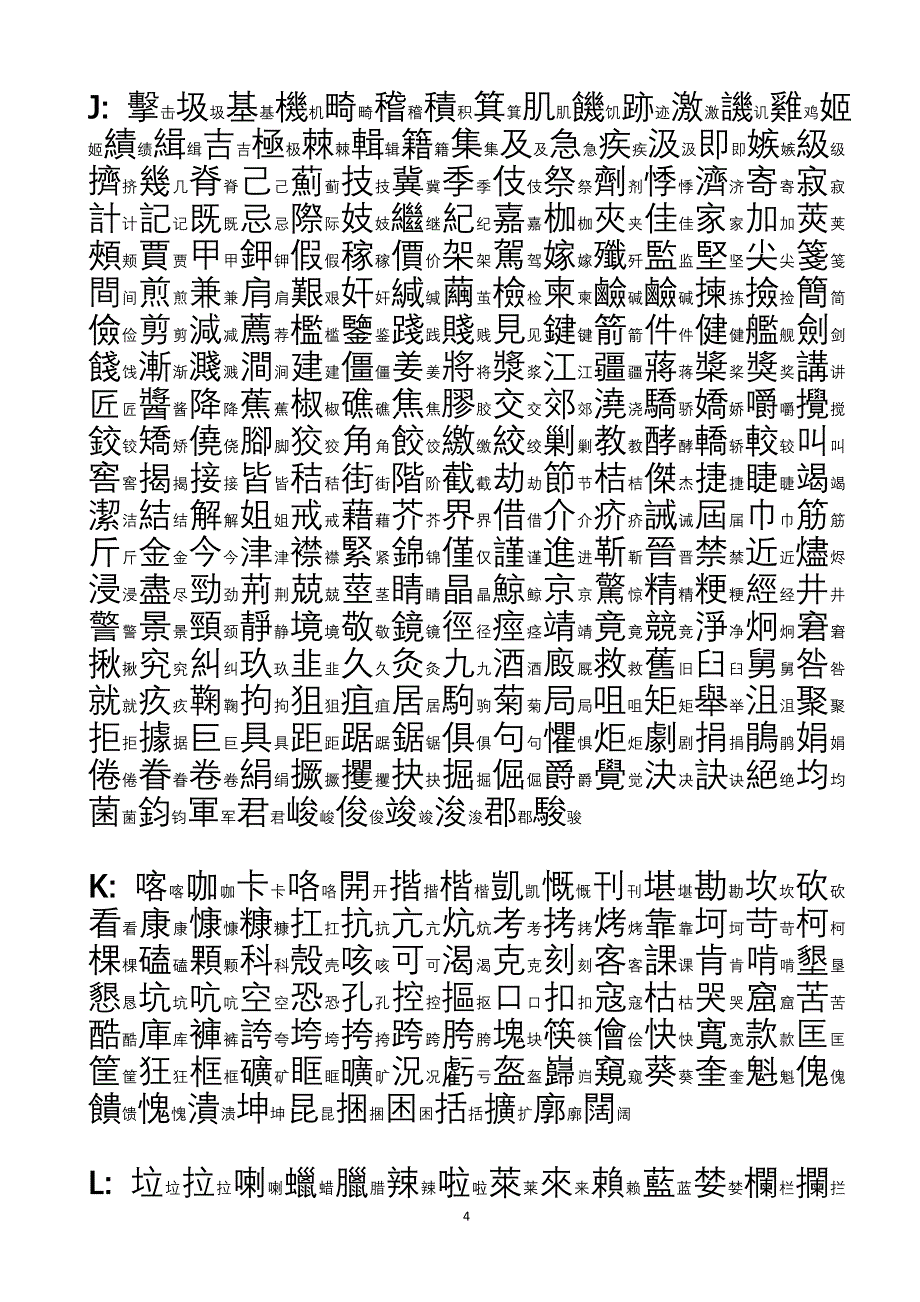 J: 擊击圾圾基基機机畸畸稽稽積积箕箕肌肌饑饥跡迹激激譏讥雞鸡姬
姬績绩緝缉吉吉極极棘棘輯辑籍籍集集及及急急疾疾汲汲即即嫉嫉級级
擠挤幾几脊脊己己薊蓟技技冀冀季季伎伎祭祭劑剂悸悸濟济寄寄寂寂
計计記记既既忌忌際际妓妓繼继紀纪嘉嘉枷枷夾夹佳佳家家加加莢荚
頰颊賈贾甲甲鉀钾假假稼稼價价架架駕驾嫁嫁殲歼監监堅坚尖尖箋笺
間间煎煎兼兼肩肩艱艰奸奸緘缄繭茧檢检柬柬鹼碱鹼碱揀拣撿捡簡简
儉俭剪剪減减薦荐檻槛鑒鉴踐践賤贱見见鍵键箭箭件件健健艦舰劍剑
餞饯漸渐濺溅澗涧建建僵僵姜姜將将漿浆江江疆疆蔣蒋槳桨獎奖講讲
匠匠醬酱降降蕉蕉椒椒礁礁焦焦膠胶交交郊郊澆浇驕骄嬌娇嚼嚼攪搅
鉸铰矯矫僥侥腳脚狡狡角角餃饺繳缴絞绞剿剿教教酵酵轎轿較较叫叫
窖窖揭揭接接皆皆秸秸街街階阶截截劫劫節节桔桔傑杰捷捷睫睫竭竭
潔洁結结解解姐姐戒戒藉藉芥芥界界借借介介疥疥誡诫屆届巾巾筋筋
斤斤金金今今津津襟襟緊紧錦锦僅仅謹谨進进靳靳晉晋禁禁近近燼烬
浸浸盡尽勁劲荊荆兢兢莖茎睛睛晶晶鯨鲸京京驚惊精精粳粳經经井井
警警景景頸颈靜静境境敬敬鏡镜徑径痙痉靖靖竟竟競竞淨净炯炯窘窘
揪揪究究糾纠玖玖韭韭久久灸灸九九酒酒廄厩救救舊旧臼臼舅舅咎咎
就就疚疚鞠鞠拘拘狙狙疽疽居居駒驹菊菊局局咀咀矩矩舉举沮沮聚聚
拒拒據据巨巨具具距距踞踞鋸锯俱俱句句懼惧炬炬劇剧捐捐鵑鹃娟娟
倦倦眷眷卷卷絹绢撅撅攫攫抉抉掘掘倔倔爵爵覺觉決决訣诀絕绝均均
菌菌鈞钧軍军君君峻峻俊俊竣竣浚浚郡郡駿骏
K: 喀喀咖咖卡卡咯咯開开揩揩楷楷凱凯慨慨刊刊堪堪勘勘坎坎砍砍
看看康康慷慷糠糠扛扛抗抗亢亢炕炕考考拷拷烤烤靠靠坷坷苛苛柯柯
棵棵磕磕顆颗科科殼壳咳咳可可渴渴克克刻刻客客課课肯肯啃啃墾垦
懇恳坑坑吭吭空空恐恐孔孔控控摳抠口口扣扣寇寇枯枯哭哭窟窟苦苦
酷酷庫库褲裤誇夸垮垮挎挎跨跨胯胯塊块筷筷儈侩快快寬宽款款匡匡
筐筐狂狂框框礦矿眶眶曠旷況况虧亏盔盔巋岿窺窥葵葵奎奎魁魁傀傀
饋馈愧愧潰溃坤坤昆昆捆捆困困括括擴扩廓廓闊阔
L: 垃垃拉拉喇喇蠟蜡臘腊辣辣啦啦萊莱來来賴赖藍蓝婪婪欄栏攔拦
4